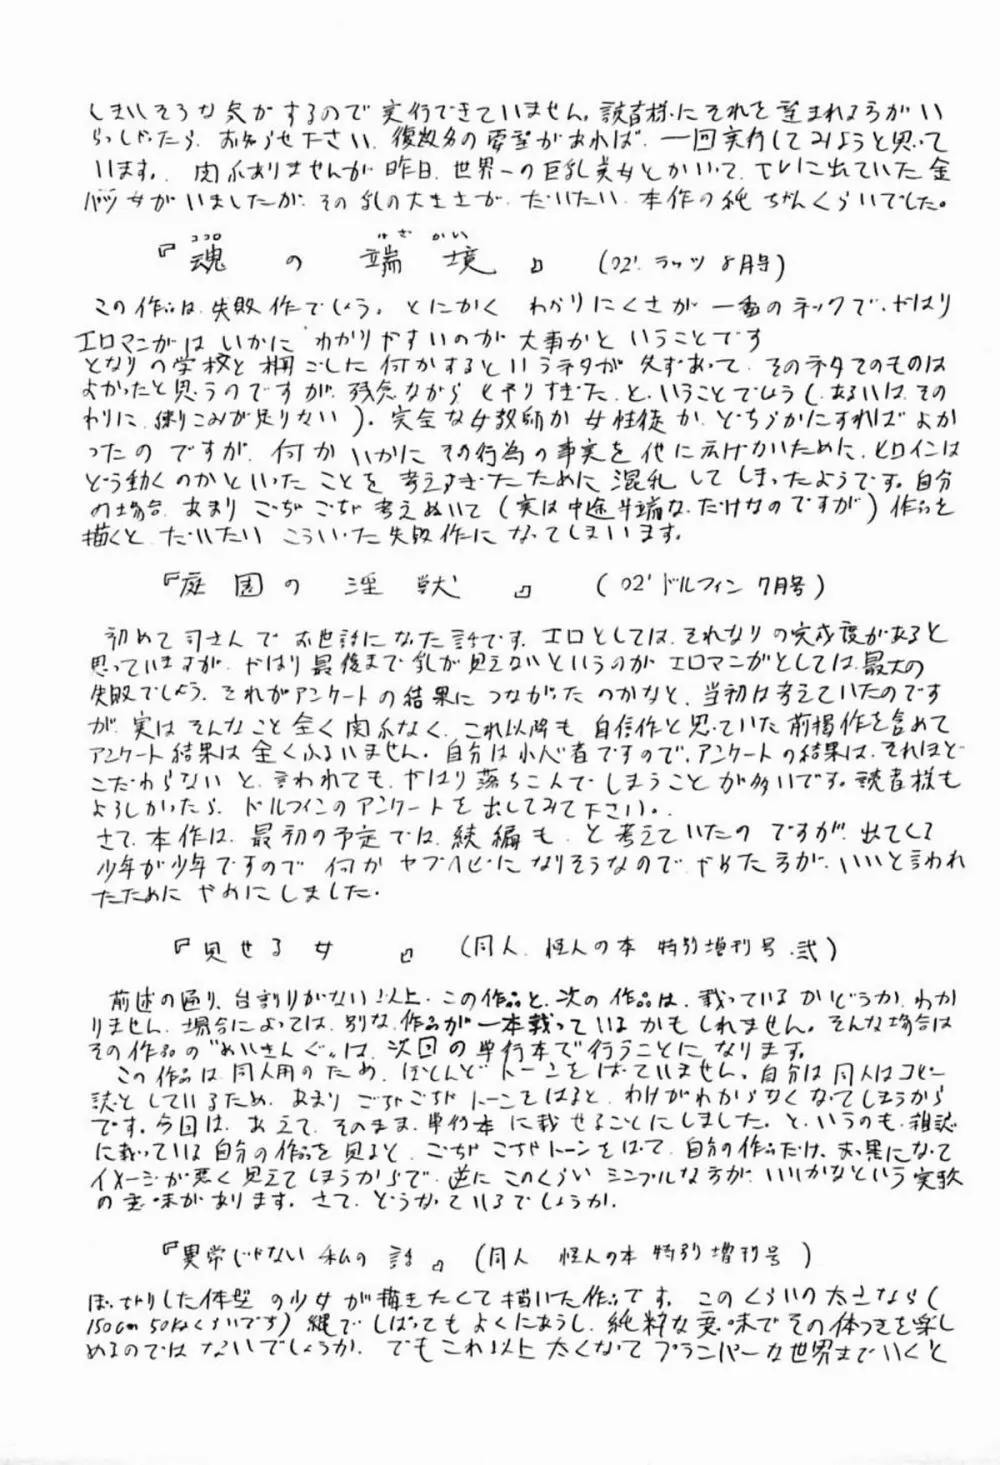 しまいそうな気がするので実行できていません。読者様にそれを望まれる方がい
らっしゃったら、お知らせ下さい。複数名の要望があれば、一回実行してみようと思って
います。関係ありませんが昨日、世界一の巨乳美女とかいって、TVに出ていた金
パツ女がいましたが、その乳の大きさが、だいたい、本作の純ちゃんくらいでした。
『魂の端境』(02'.ラッツ8月号)
ココロ はざかい
この作品は、失敗作でしょう。とにかく わかりにくさが一番のネックで、やはり
エロマンガは いかに わかりやすいのが大事かと いうことです
となりの学校と柵ごしに何かするというネタが 先ずあって、そのネタそのものは
よかったと思うのですが、残念ながら、やりすぎた、と、いうことでしょう(あるいは、その
わりに、練りこみが足りない)。完全な女教師か 女性徒 か、どちらかにすれば よか
ったの ですが、何か いかに その行為の事実を 他に広げないために、ヒロインは
どう動くのか といった ことを 考えすぎたために 混乱 して しまったようです。自分
の場合、あまり ごちゃごちゃ 考えぬいて(実は中途半端な、だけなのですが)作品を
描くと、だいたい こういった失敗作に なってしまいます。
『庭園の淫獣』(02' ドルフィン 7月号)
初めて司さんで お世話になった話です。エロとしては、それなりの完成度があると
思っていますが、やはり最後まで乳が見えないというのが エロマンガとしては、最大の
失敗でしょう。それがアンケートの結果に つながった のかなと、当初は考えていたのです
が、実は そんなこと全く関係なく、これ以降も 自信作と思っていた前掲作を含めて
アンケート結果は 全くふるいません。自分は小心者ですので、アンケートの結果は、それほど
こだわらないと、言われても、やはり落ちこんでしまうことが多いです。読者様も
よろしかったら、ドルフィンのアンケートを出してみて下さい。
さて、本作は、最初の予定では、続編も、と考えていたの ですが、出てくる
少年が少年ですので 何か ヤブヘビに なりそうなので、やめた方が、いいと言われ
たために やめにしました。
『見せる女』(同人、怪人の本 特別増刊号.弐)
前述の通り、台割りがない以上、この作品と、次の作品は、載っているかどうか、わか
りません。場合によっては、別な作品が一本載っているかもしれません。そんな場合は
その作品の"めいきんぐ"は、次回の単行本で行うことに なります。
この作品は、同人用のため、ほとんど トーンをはっていません。自分は同人はコピー
誌と しているため、あまり ごちゃごちゃ トーンをはると、わけがわからなくなってしまうから
です。今回は、あえて、そのまま、単行本に載せることにしました。と、いうのも、雑誌
に載っている自分の作品を見ると、ごちゃごちゃトーンをはって、自分の作品だけ、まっ黒になって
イメージが悪く見えてしまうからで、逆に このくらい シンプルな方が、いいかなという実験
の意味があります。さて、どうなっているでしょうか。
『異常じゃない私の話』(同人 怪人の本 特別増刊号)
ぽっちゃりした体型の少女が描きたくて描いた作品です。このくらいの太さなら(
150cm 50kgくらいです)縄でしばっても よくにあうし、純粋な意味でその体つきを楽し
めるのでは ないでしょうか。でもこれ以上 太くなって プランパーな世界までいくと